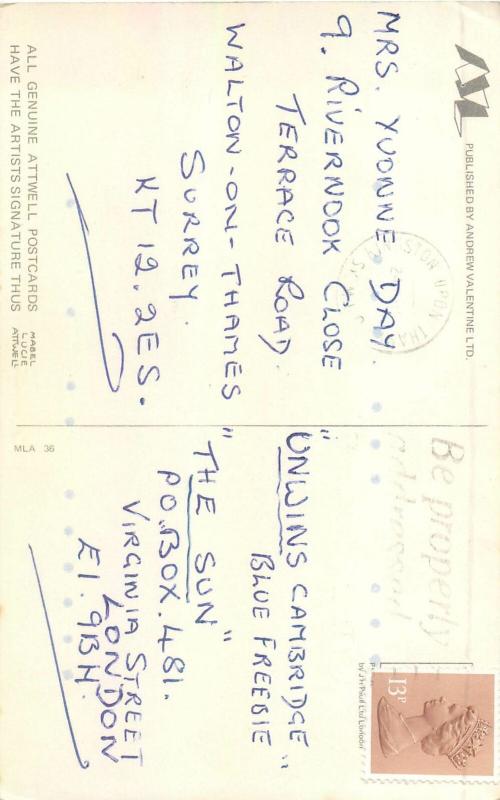 PUBLISHED BY ANDREW VALENTINE LTD.
MRS. YVONNE DAY.
9. RIVERNOOK CLOSE
TERRACE ROAD.
WALTON-ON-THAMES
SURREY.
KT 12. 2ES.
ALL GENUINE ATTWELL POSTCARDS
HAVE THE ARTISTS SIGNATURE THUS
MABEL
LUCIE
ATTWELL
MLA 36
Be properly
addressed
13P
"UNWINS CAMBRIDGE"
BLUE FREEBIE
"THE SUN"
P.O. BOX. 481.
VIRGINIA STREET
LONDON
E1. 9BH.